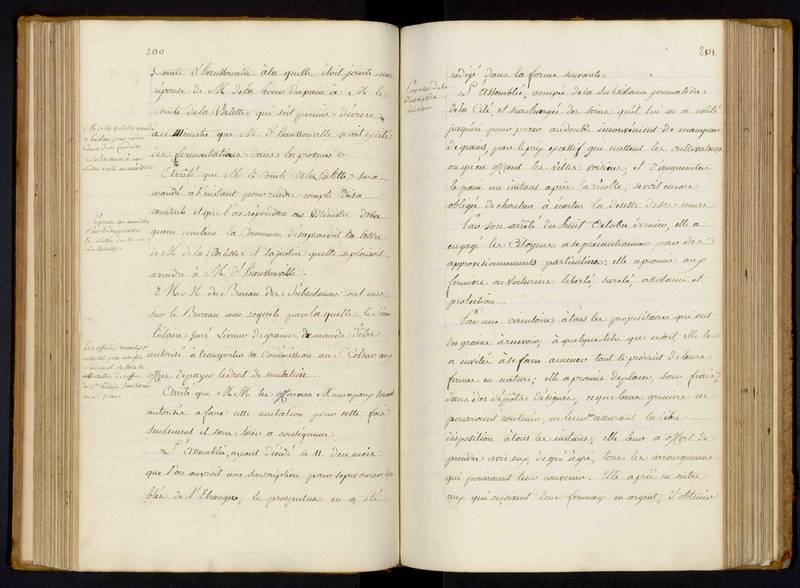 200
Comte d'haussonville à la quelle étoit jointe une
réponse de M. de la Tour du pain à M. le
Comte de la Valette qui s'est permis d'écrire
au Ministre que M. d'haussonville avoit excité
des fermentations dans la province
Arrêté que M. le Comte de la Valette sera
mandé à l'instant pour rendre compte de sa
conduite et que l'on répondra au Ministre
combien la Commune désaprouvoit la lettre
de M. de la Valette et la justice qu'elle se plaisoit
a rendre à M. d'haussonville.
MM. du Bureau des Subsistances ont mis
sur le Bureau une requête par laquelle le S.
Juré de grains, demande d'être
autorisé à transporter sa Commission au S. Colson aux
offres de payer le droit de mutation.
Arrêté que MM. les officiers Municipaux seront
autorisés a faire cette mutation pour cette fois
seulement et sans tirer a conséquence.
L'Assemblée, ayant décidé le 11. de ce mois
que l'on ouvroit une souscription pour se procurer des
blés de l'Etranger, le prospectus en a été
201
rédigé dans la forme suivante
L'Assemblée, occupée de la subsistance journalière
de la Cité, et surchargée des soins qu'il lui en a coûté
jusqu'ici pour parer au double inconvénient de manquer
de grains, par le prix excessif qui mettent les cultivateurs
ou qu'en offrent les villes voisines, et d'augmenter
le pain un instant après la récolte, se voit encore
obligée de chercher à écarter la disette de ses murs.
Par son arrêté du huit Octobre dernier, elle a
engagé les Citoyens à se précautionner par des
approvisionnements particuliers; elle a promis aux
fermiers ou voituriers liberté, sureté, assistance et
protection.
Par une circulaire à tous les propriétaires qui ont
des grains à recevoir, à quelque titre que ce soit, elle les
a invités à se faire amener tout le produit de leurs
fermes en nature; elle a promis de placer, sans frais,
dans des dépôts désignés, ce que leurs greniers ne
pourroient contenir, en leur assurant la libre
disposition à tous les instants; elle leur a offert de
prendre avec eux, de gré à gré, tous les arrangements
qui pourroient leur convenir. Elle a prié en outre
ceux qui reçoivent leur fermage en argent, d'obtenir